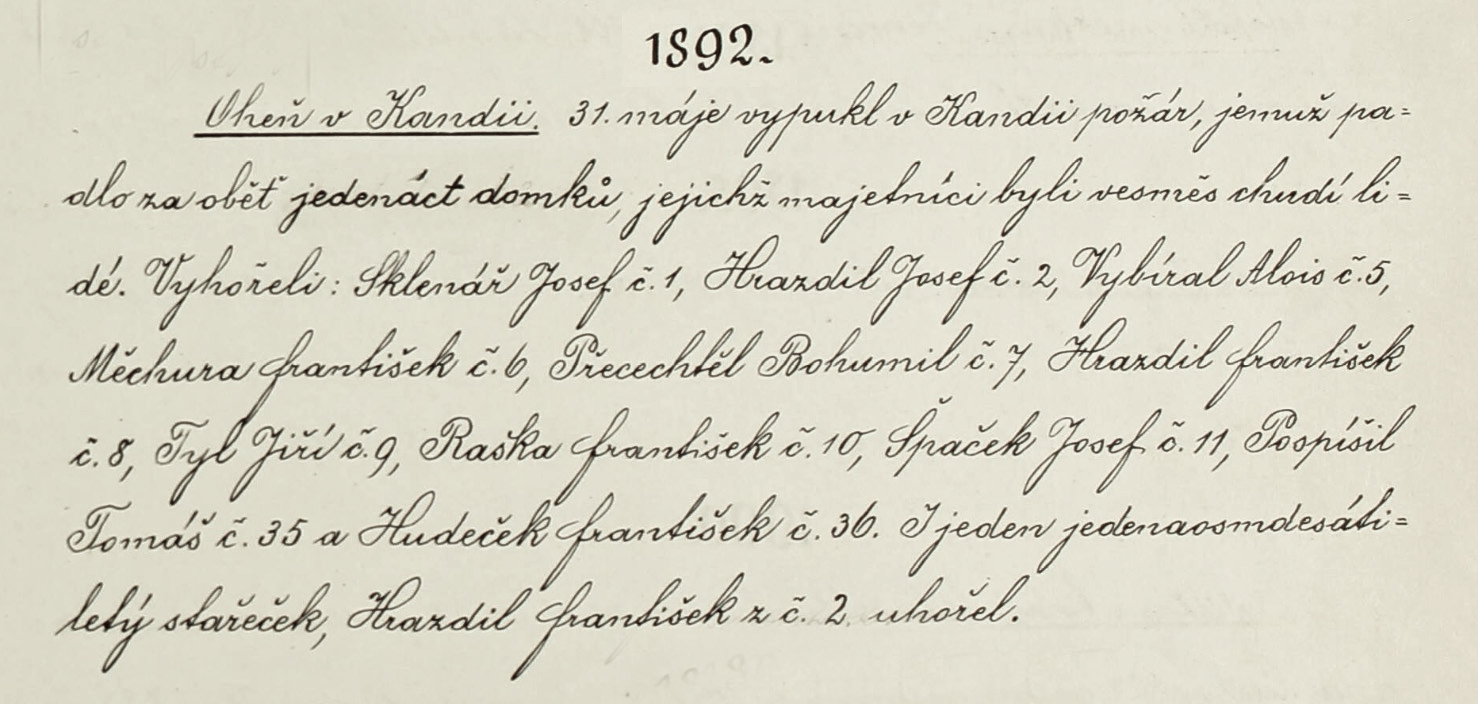 1892.
Oheň v Kandii. 31. máje vypukl v Kandii požár, jemuž pa=
dlo za oběť jedenáct domků, jejichž majetníci byli vesměs chudí li=
dé. Vyhořeli: Sklenář Josef č. 1, Hrazdil Josef č. 2, Vybíral Alois č. 5,
Měchura František č. 6, Přecechtěl Bohumil č. 7, Hrazdil František
č. 8, Tyl Jiří č. 9, Raška František č. 10, Špaček Josef č. 11, Pospíšil
Tomáš č. 35 a Hudeček František č. 36. I jeden jedenaosmdesáti=
letý stařeček, Hrazdil František z č. 2 uhořel.